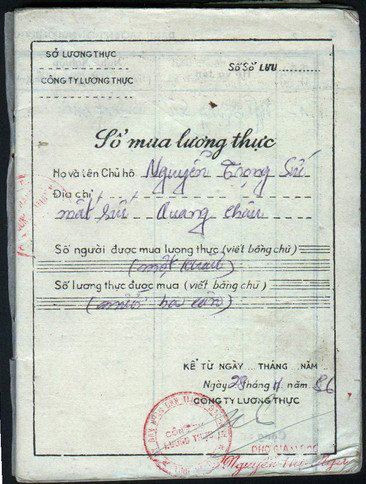 SỞ LƯƠNG THỰC
CÔNG TY LƯƠNG THỰC
Số Sổ LƯU ............
Sổ mua lương thực
Họ và tên Chủ hộ Nguyễn Trọng
Địa chỉ
Quang
Số người được mua lương thực (viết bằng chữ)
(một
Số lương thực được mua (viết bằng chữ)
(mười ba cân)
KỂ TỪ NGÀY ... THÁNG ... NĂM ...
Ngày 28 tháng 11 năm 86
CÔNG TY LƯƠNG THỰC
PHÓ GIÁM ĐỐC
Nguyễn